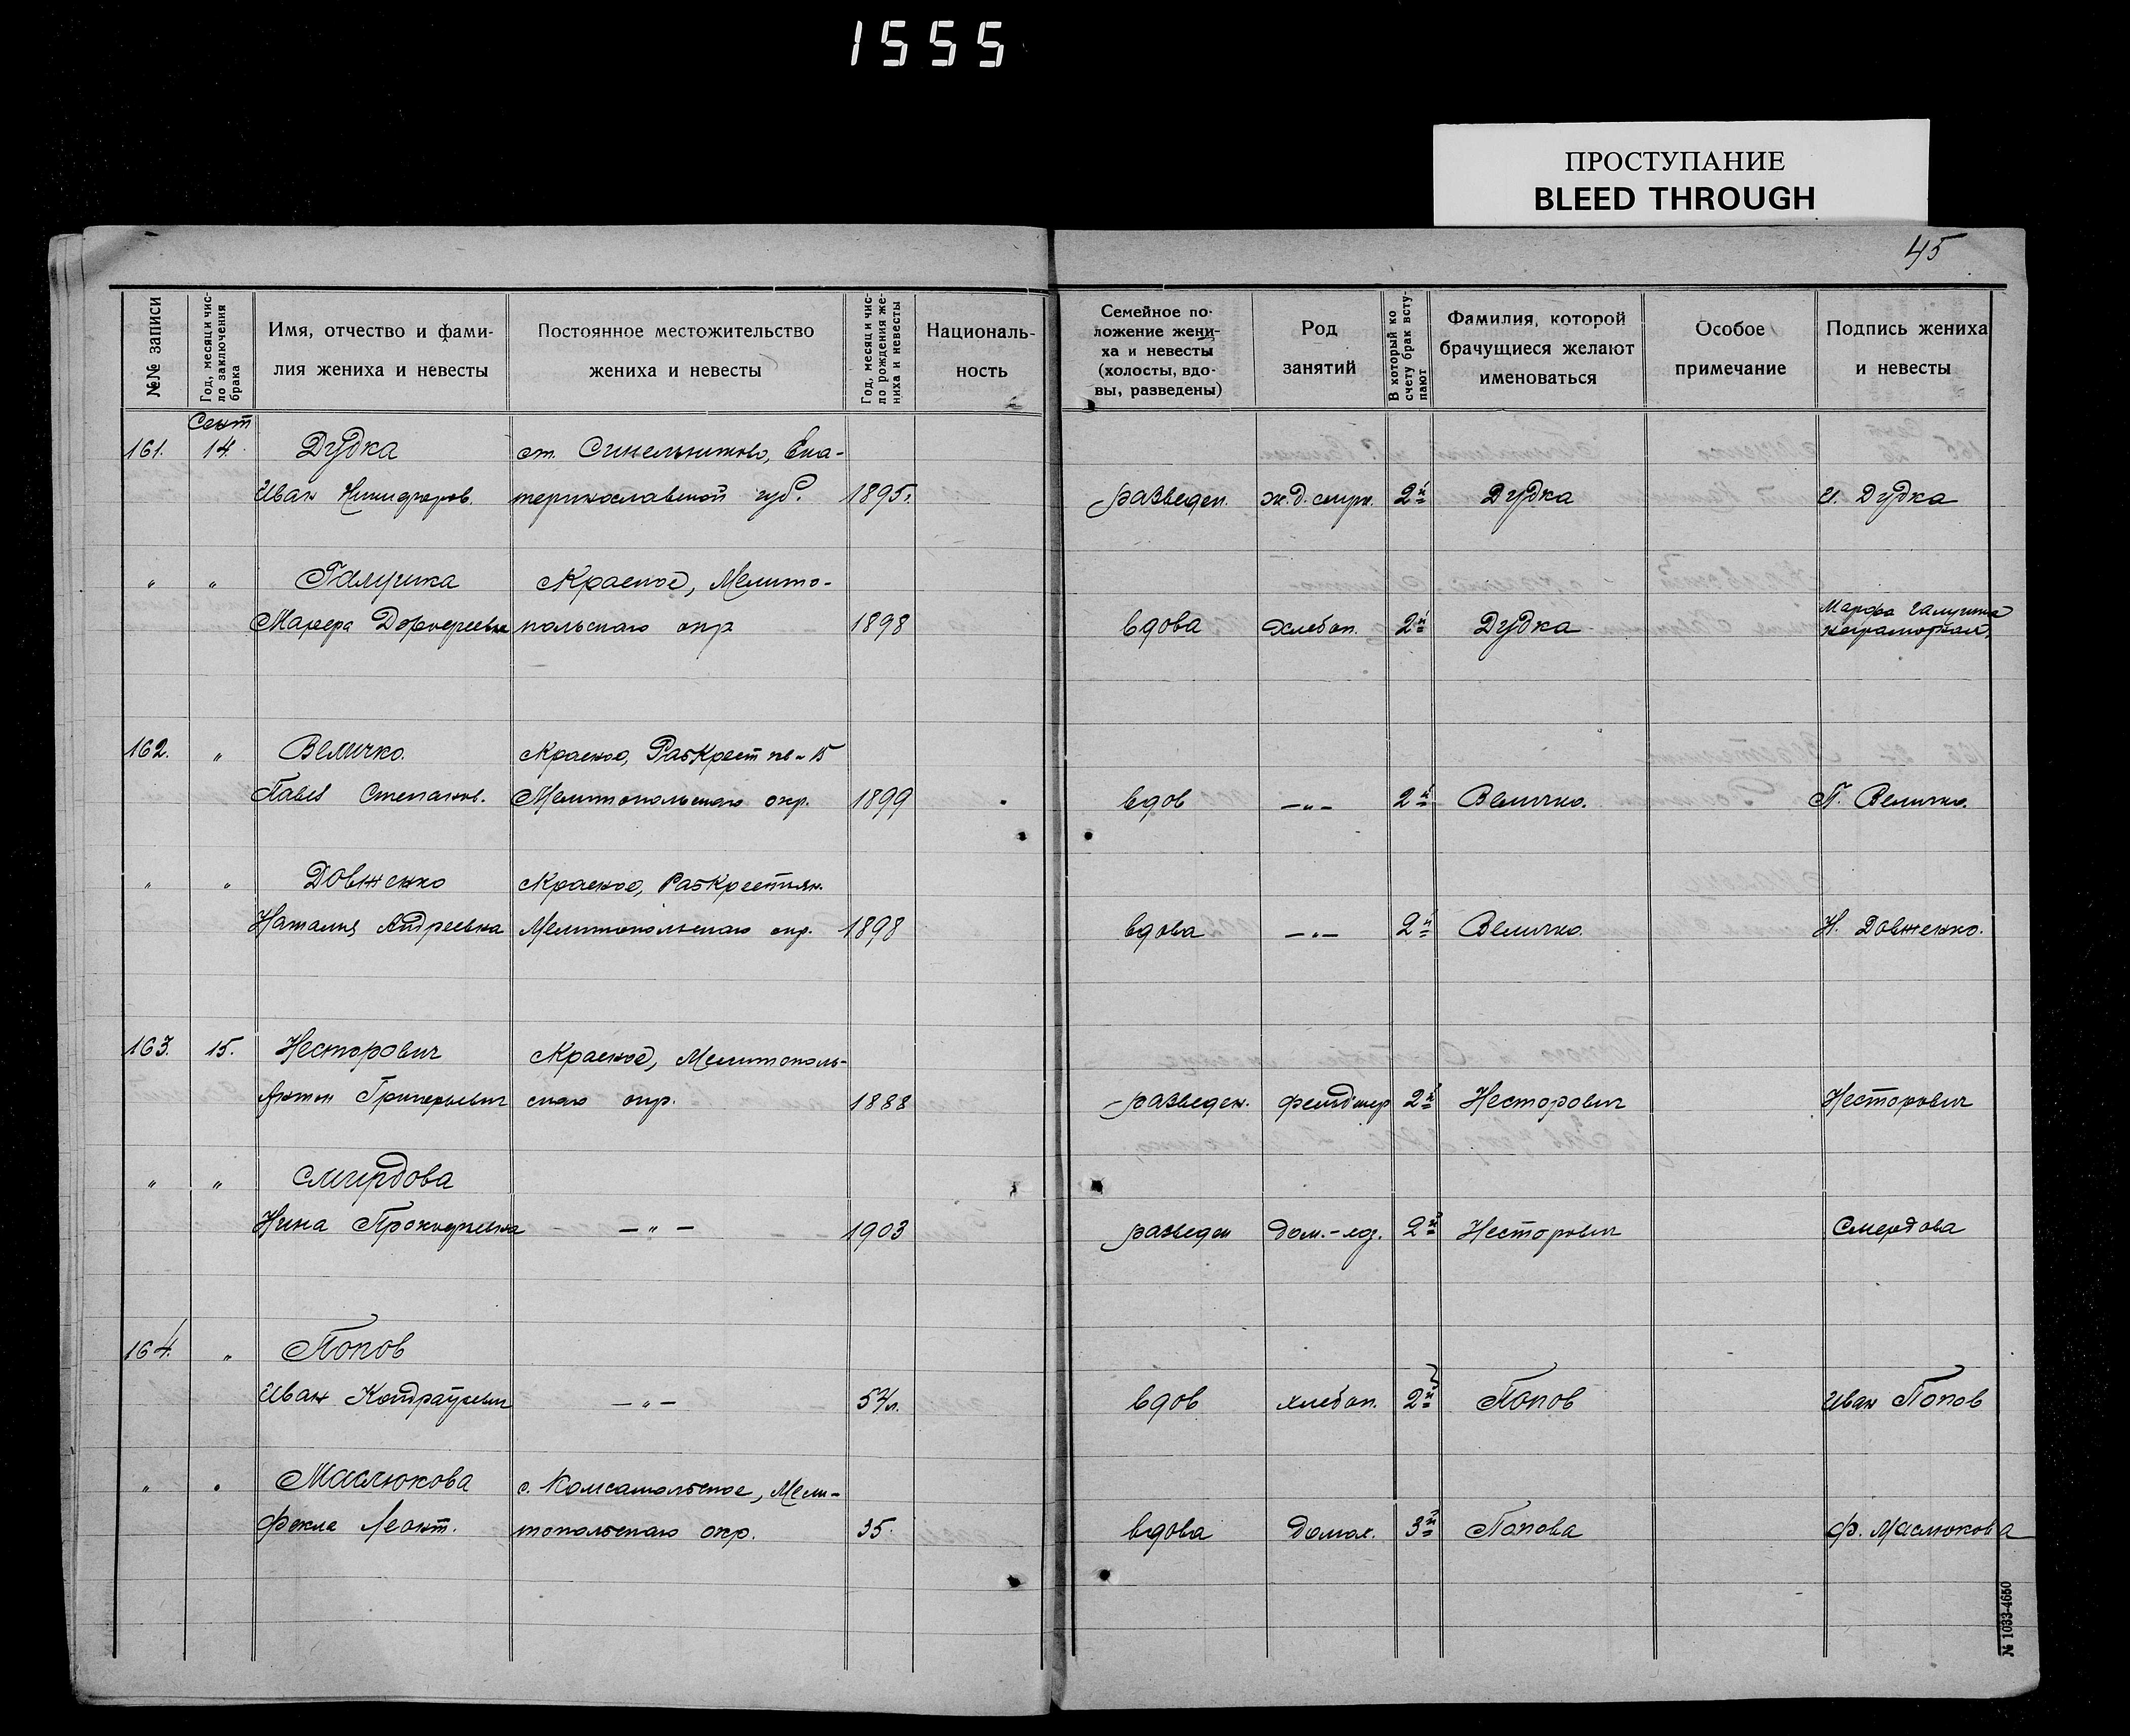 1555
ПРОСТУПАНИЕ
BLEED THROUGH
45
№№ записи
Год, месяц и чис-
ло заключения
брака
Имя, отчество и фами-
лия жениха и невесты
Постоянное местожительство
жениха и невесты
Год, месяц и чис-
ло рождения же-
ниха и невесты
Националь-
ность
Семейное по-
ложение жени-
ха и невесты
(холосты, вдо-
вы, разведены)
Род
занятий
В который ко
счету брак всту-
пают
Фамилия, которой
брачущиеся желают
именоваться
Особое
примечание
Подпись жениха
и невесты
Сент
161. 14. Дудка ст. Синельниково, Ека-
Иван Никифоров. теринославской губ. 1895г. разведен. ж.д. служ. 2й Дудка И. Дудка
" " Галушка Красное, Мелито-
польского окр 1898 вдова хлебоп. 2й Дудка Марфа Галушка
неграмотная.
162. " Величко. Красное, РабКрест 15
Павел Степанов. Мелитопольского окр. 1899 вдов —"— 2й Величко. П. Величко.
" " Довженко Красное, РабКрестьян.
Наталия Андреевна Мелитопольского окр. 1898 вдова —"— 2й Величко. Н. Довженко.
163. 15. Несторович Красное, Мелитополь-
Антон Григорьевич ского окр. 1888 разведен. фельдшер 2й Несторович Несторович
" " Смирдова
Нина Прокофьевна —"— 1903 разведен дом.-хоз. 2й Несторович Смердова
164. " Попов
Иван Кондратьевич —"— 54л. вдов хлебоп. 2й Попов Иван Попов
" " Маслюкова с. Комсамольское, Мели-
Фекла Леонт. топольского окр. 35. вдова Домох. 3й Попова Ф. Маслюкова
№ 1033-4650